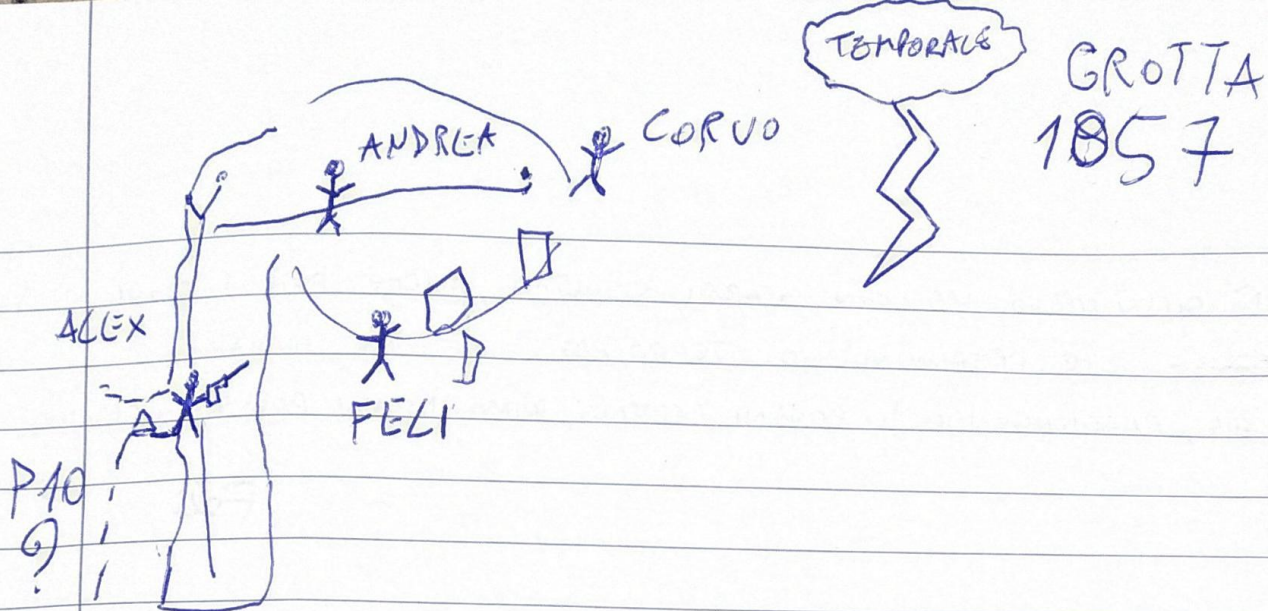 TEMPORALE
GROTTA
1857
ANDREA
CORVO
ALEX
FELI
P10
?